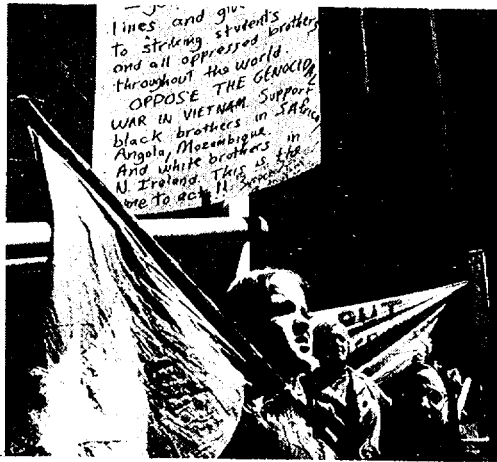 lines and giv
to striking students
and all oppressed brothers
throughout the world.
OPPOSE THE GENOCIDAL
WAR IN VIETNAM. Support
black brothers in S Africa,
Angola, Mozambique
And white brothers in
N. Ireland. This is the
me to act!!
OUT